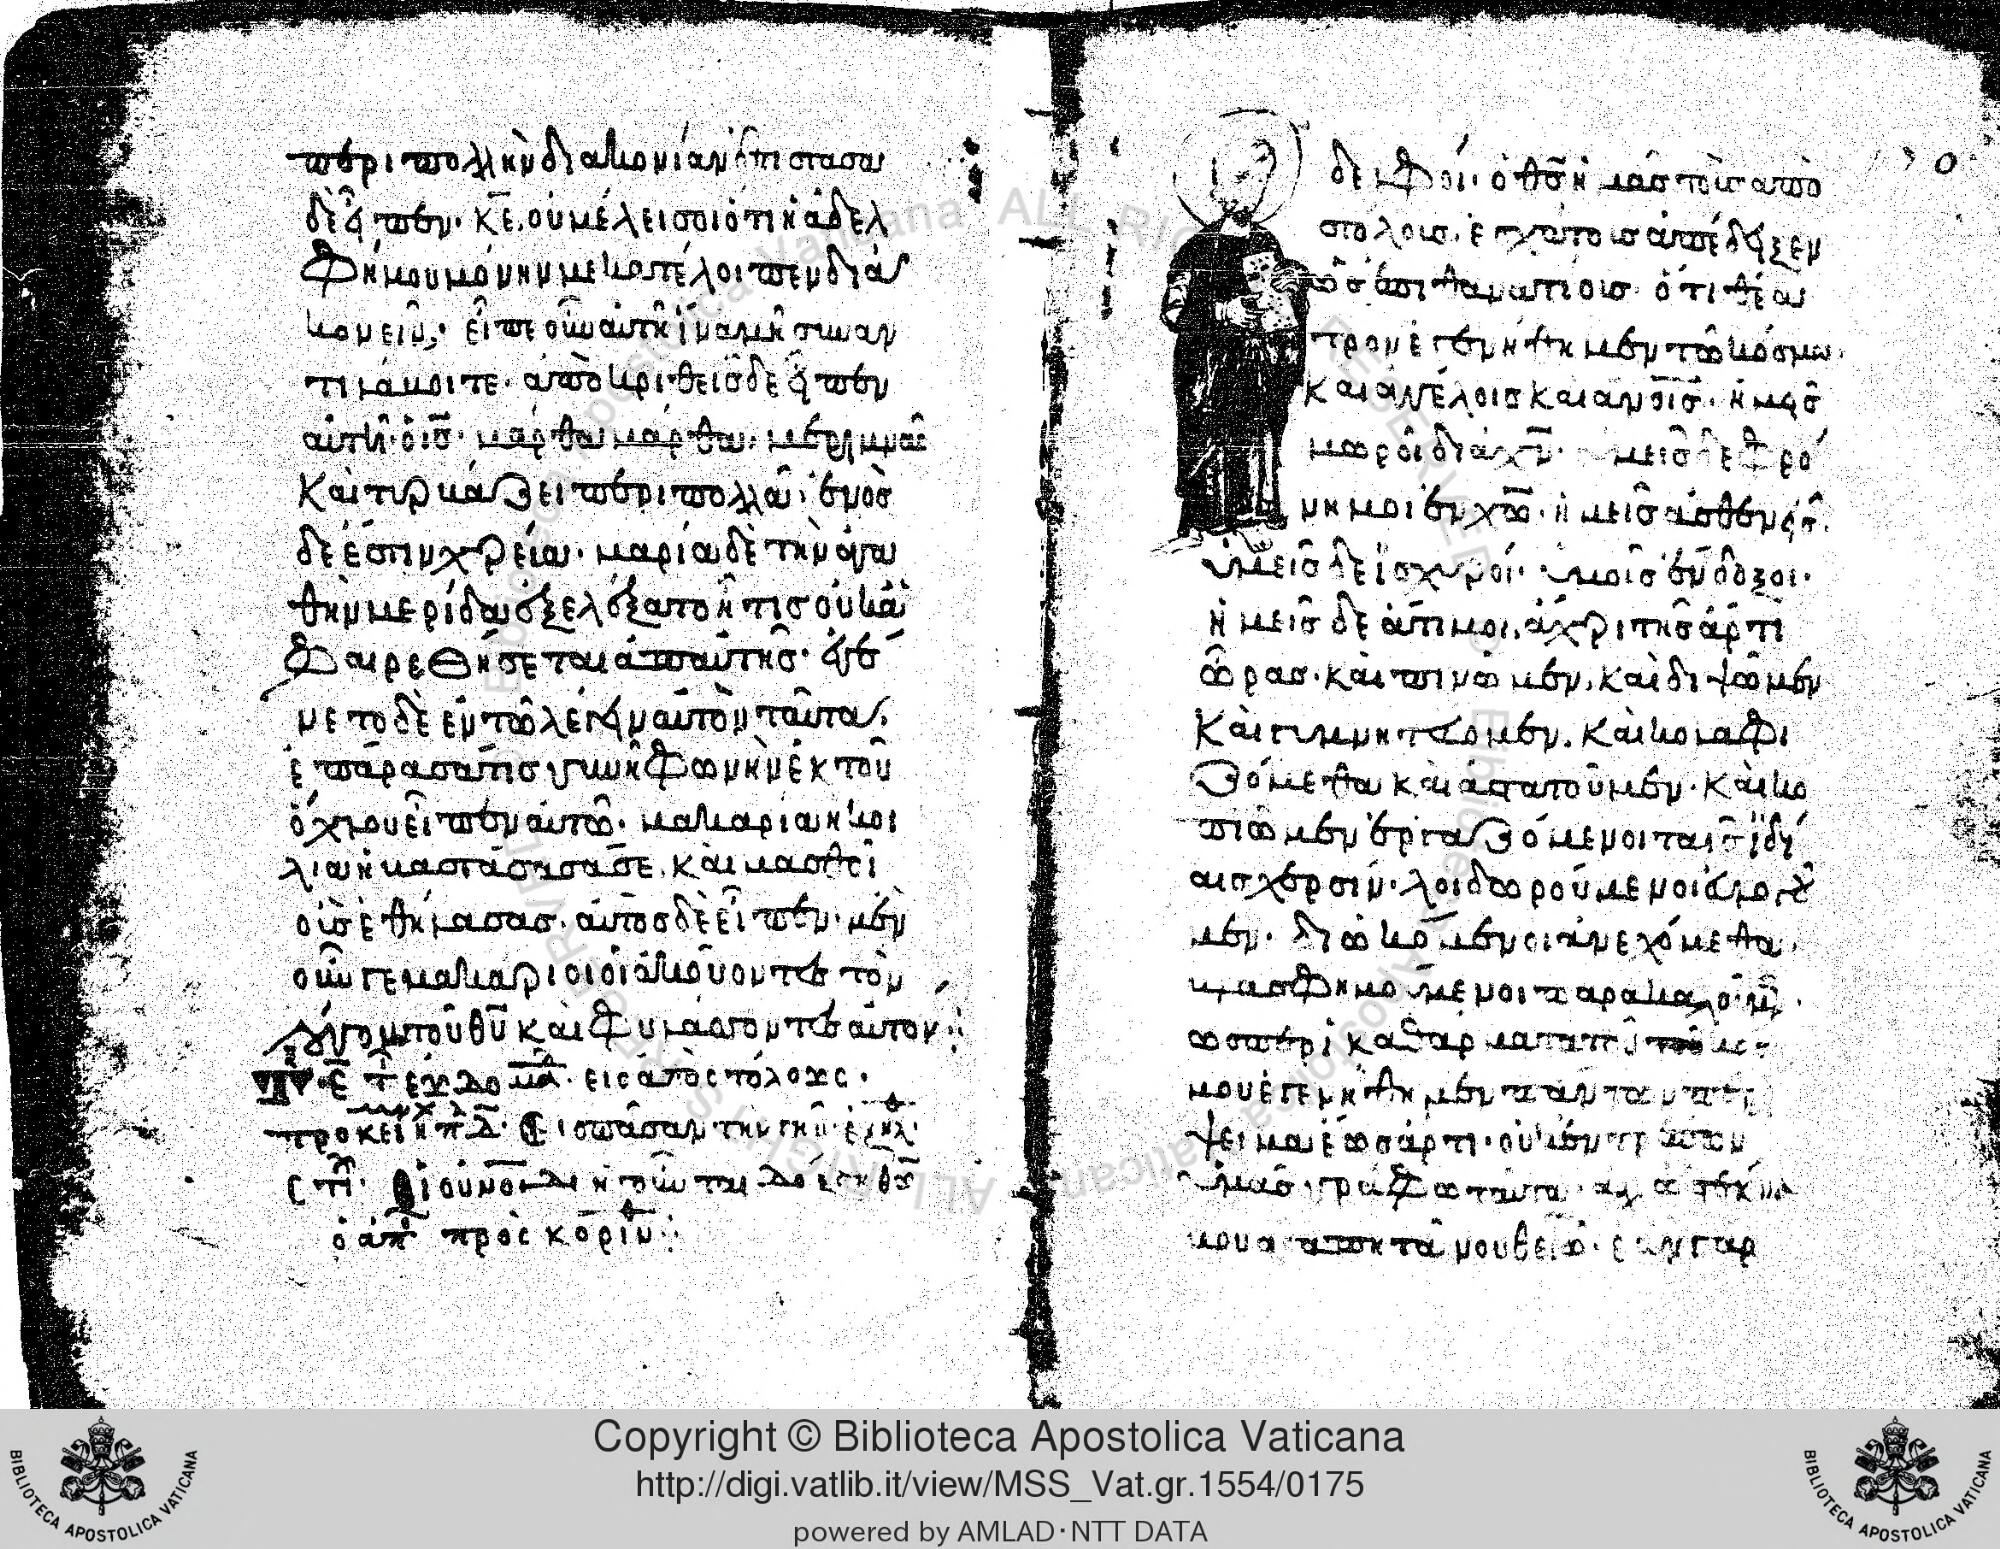 περι πολλὴν διακονίαν ἐπιστασα
δὲ εἶπεν· κ̅ε̅, οὐ μέλει σοι ὅτι ἡ ἀδελ
φή μου μόνην με κατέλοιπεν δια
κονεῖν· εἰπὲ οὖν αὐτῆ ἵνα μοι συναν
τιλάβηται· ἀποκριθεὶς δὲ εἶπεν
αὐτῆ ὁ ι̅ς̅· μάρθα μάρθα· μεριμνᾶς
καὶ τυρβάζει περι πολλα· ἑνὸς
δέ ἐστιν χρεία· μαρία δὲ τὴν ἀγα
θὴν μερίδα ἐξελέξατο ἥτις οὐκ ἀ
φαιρεθήσεται ἀπ αὐτῆς· ἐγέ
νετο δὲ ἐν τῶ λέγειν αὐτὸν ταῦτα,
ἐπάρασά τις γυνὴ φωνὴν ἐκ τοῦ
ὄχλου εἶπεν αὐτῶ· μακαρία ἡ κοι
λία ἡ βαστάσασά σε, καὶ μασθοὶ
οὓς ἐθήλασας· αὐτὸς δὲ εἶπεν· μεν
οῦν γε μακάριοι οἱ ἀκούοντες τὸν
λόγον τοῦ θ̅υ̅ καὶ φυλάσσοντες αὐτόν
εἰς ἀποστόλους·
προκεί Εἰς πᾶσαν τὴν γῆν· ἐξῆλ·
στι· Οἱ οὐνοὶ διηγοῦνται δόξαν θ̅υ̅
ὁ ἀπ πρὸς κορίν
δελφοί· ὁ θ̅ς̅ ἡμᾶς τοὺς ἀπο
στόλους, ἐσχάτους ἀπέδειξεν
ὡς ἐπιθανατίους· ὅτι θέα
τρον ἐγενήθημεν τῶ κόσμω·
καὶ ἀγγέλοις καὶ ἀν̅ο̅ις· ἡμεῖς
μωροὶ διὰ χ̅ν̅· ὑμεῖς δὲ φρό
νημοι ἐν χ̅ω̅· ἡμεῖς ἀσθενεῖς·
ὑμεῖς δὲ ἰσχυροί· ὑμεῖς ἔνδοξοι·
ἡμεῖς δὲ ἄτιμοι, ἄχρι τῆς ἄρτι
ὥρας· καὶ πινῶμεν, καὶ διψῶμεν
καὶ γυμνητεύομεν, καὶ κολαφι
ζόμεθα καὶ ἀστατοῦμεν· καὶ κο
πιῶμεν ἐργαζόμενοι ταῖς ἰδί
αις χερσίν· λοιδωρούμενοι εὐλογοῦ
μεν· διωκόμενοι ἀνεχόμεθα·
βλασφημούμενοι παρακαλοῦμεν·
ὡσπερὶ καθάρματα τοῦ κόσ
μου ἐγενήθημεν πάντων περί
ψειμα ἕως ἄρτι· οὐκ ἐντρέπων
ὑμᾶς γράφω ταῦτα· ἀλλ ὡς τέκνα
μου ἀγαπητὰ νουθετῶ· ἐὰν γὰρ
Copyright © Biblioteca Apostolica Vaticana
http://digi.vatlib.it/view/MSS_Vat.gr.1554/0175
powered by AMLAD·NTT DATA
BIBLIOTECA APOSTOLICA VATICANA
BIBLIOTECA APOSTOLICA VATICANA